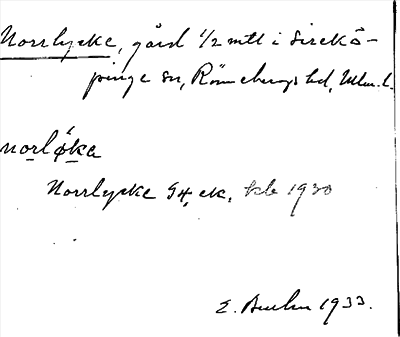 Norrlycke, gård 1/2 mtl i Sirekö-
pinge sn, Rönnebergs hd, Mlm. l.
norløka
Norrlycke G4, ek. kbl 1930
E. 1933.